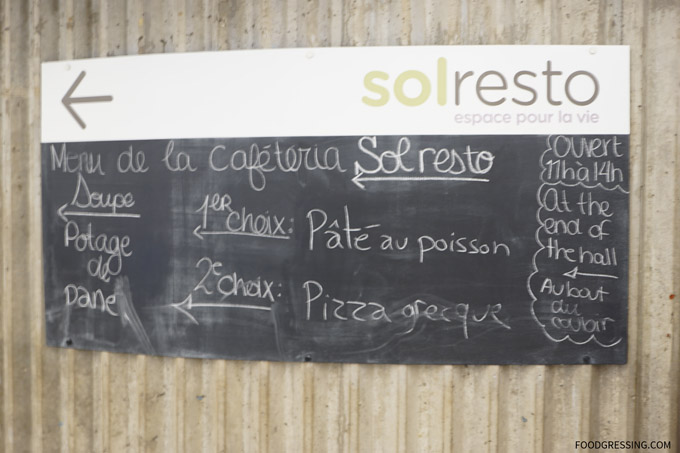 solresto
espace pour la vie
Menu de la Caféteria Sol resto
Soupe
Potage
de
pané
1er choix: Pâté au poisson
2e choix: Pizza grecque
Ouvert
11h à 14h
At the
end of
the hall
Au bout
du
couloir
FOODGRESSING.COM